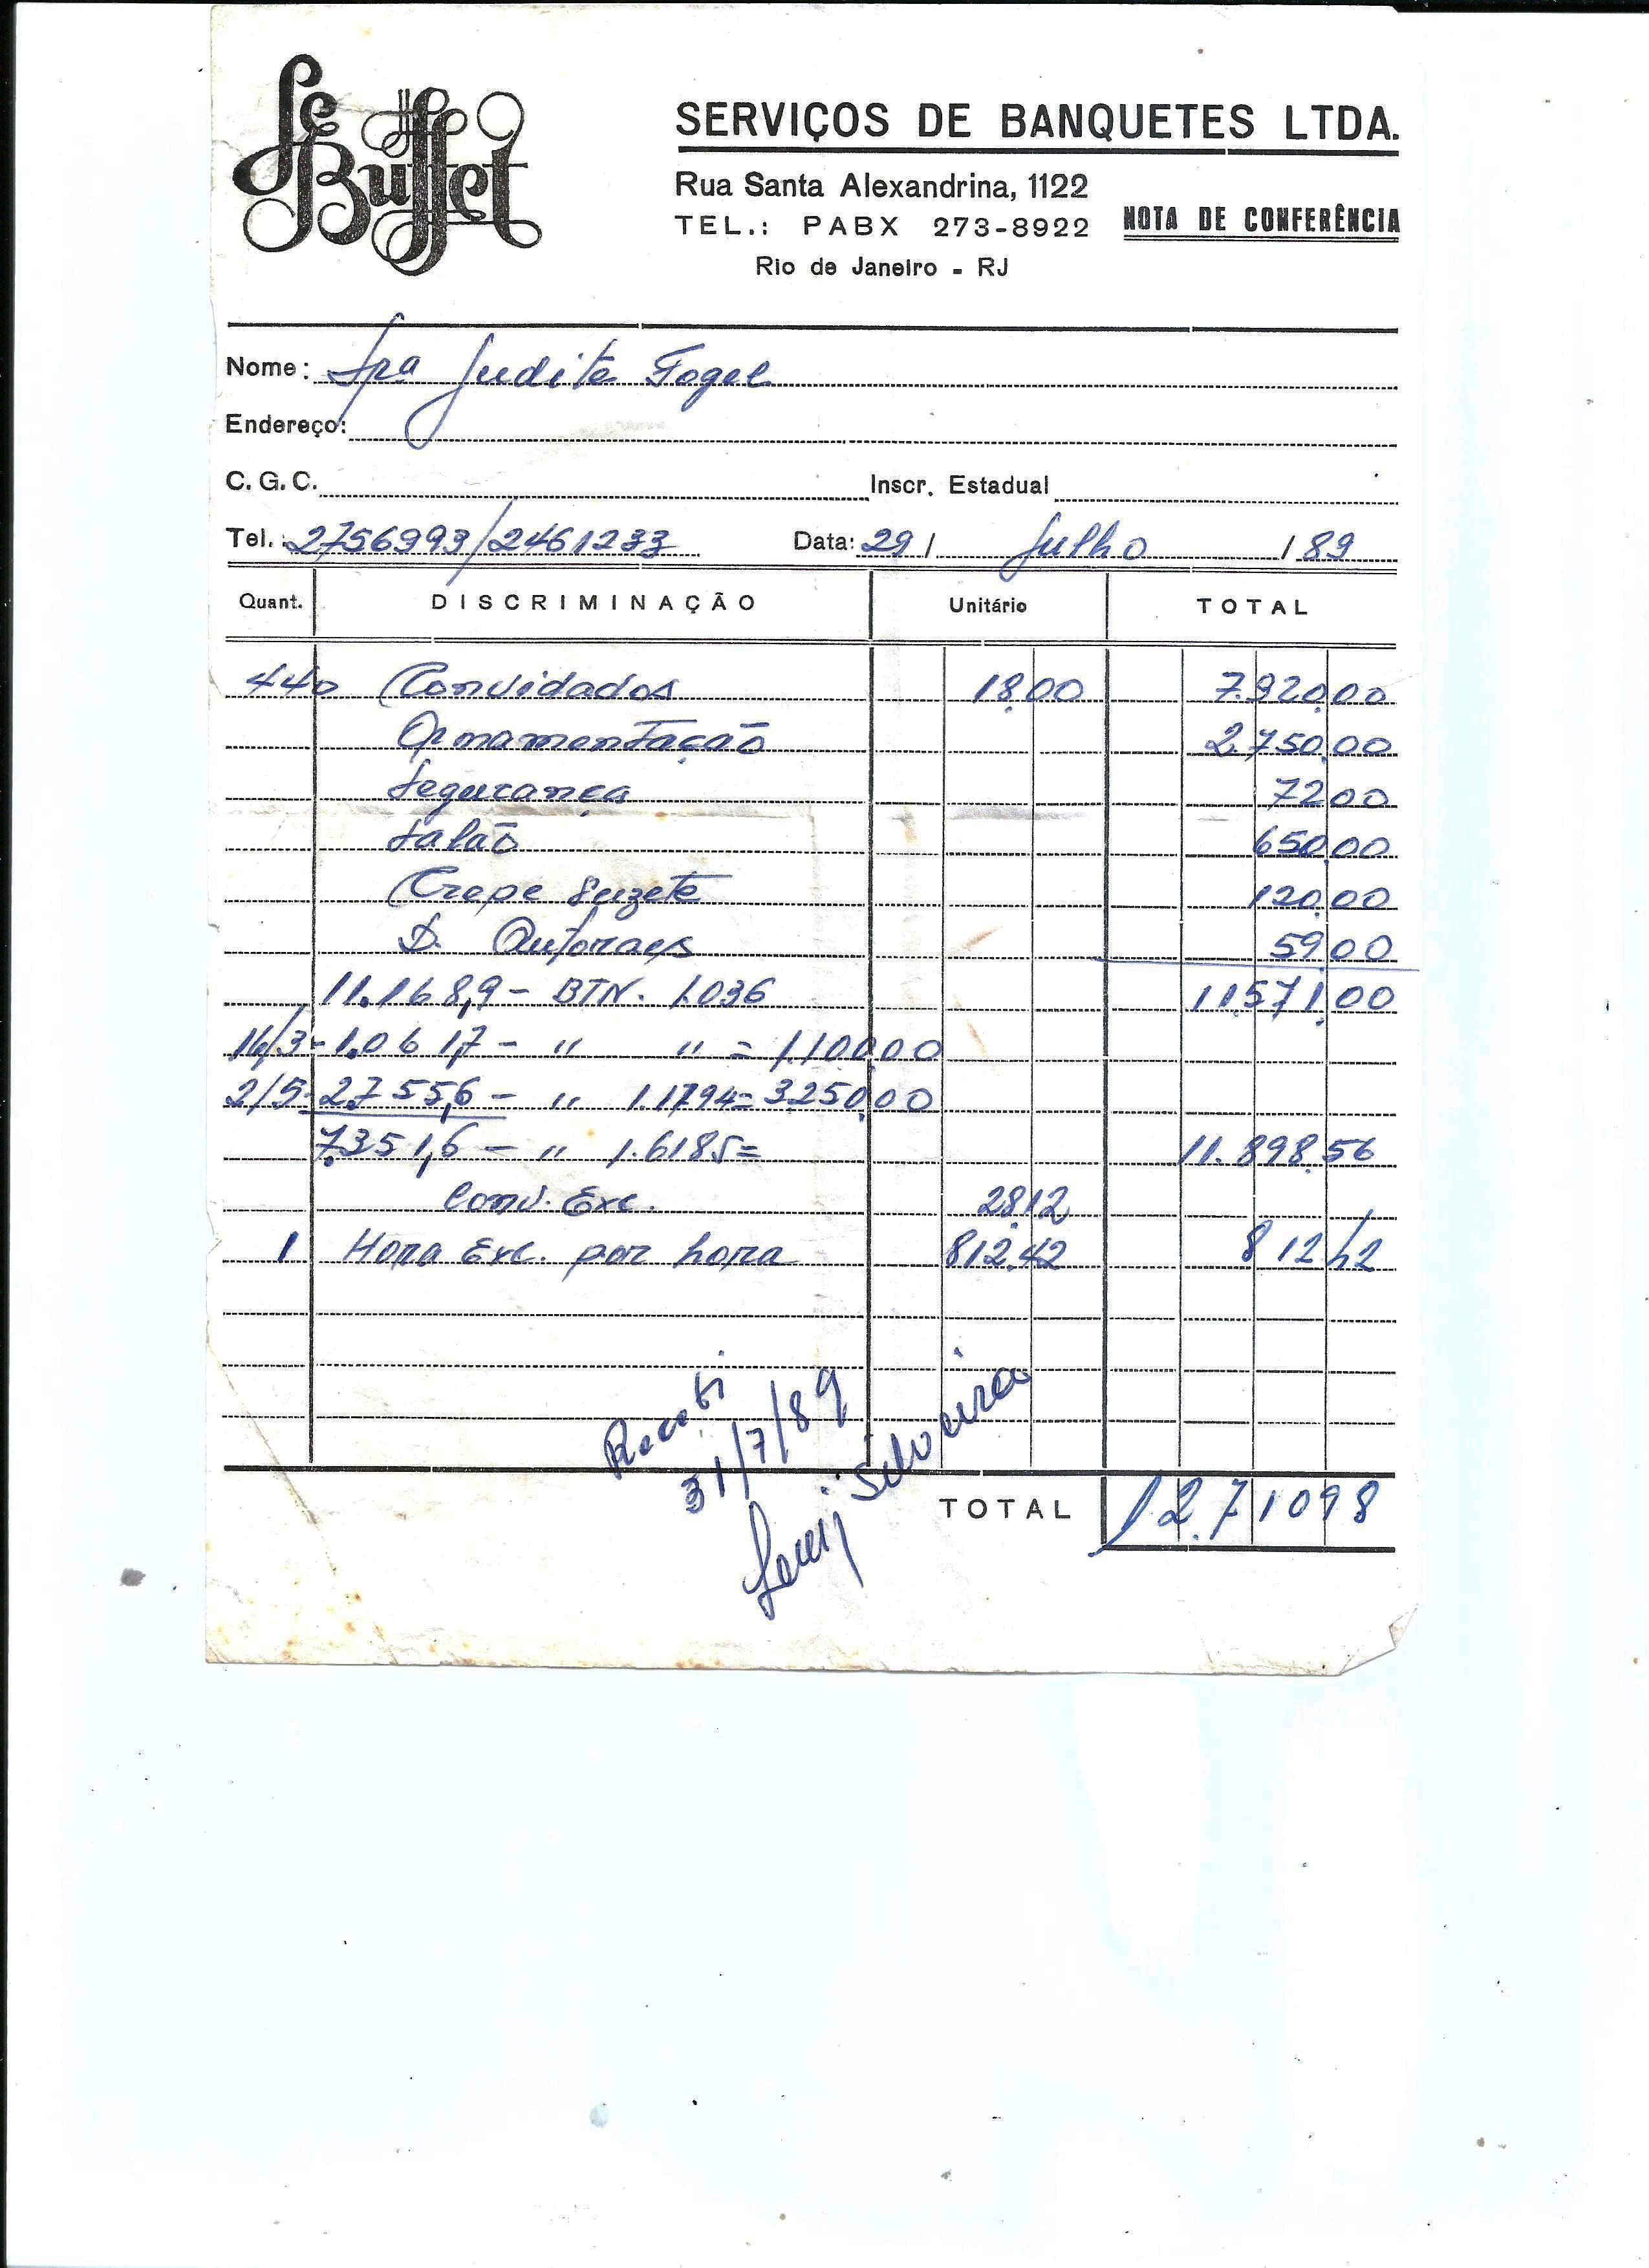 Le Buffet
SERVIÇOS DE BANQUETES LTDA.
Rua Santa Alexandrina, 1122
TEL.: PABX 273-8922 NOTA DE CONFERÊNCIA
Rio de Janeiro - RJ
Nome: Sra Judite Fogel
Endereço:
C. G. C. Inscr. Estadual
Tel.: 2756993/2461233 Data: 29 / Julho / 89
Quant. DISCRIMINAÇÃO Unitário TOTAL
440 Convidados 18.00 7.920.00
Ornamentação 2.750.00
Segurança 72 00
Salão 650.00
Crepe Suzete 120.00
D. Autoraes 59 00
11.168,9 - BTN. 1.036 11.571.00
16/3 - 1.061,7 - " " = 1.100.00
2/5 - 2.755,6 - " 1.1794 = 3.250.00
7.351,6 - " 1.6185 = 11.898.56
Conv. Exc. 28.12
1 Hora Exc. por hora 812.42 812 42
Recebi
31/7/89
Silveira
TOTAL 12.710 98